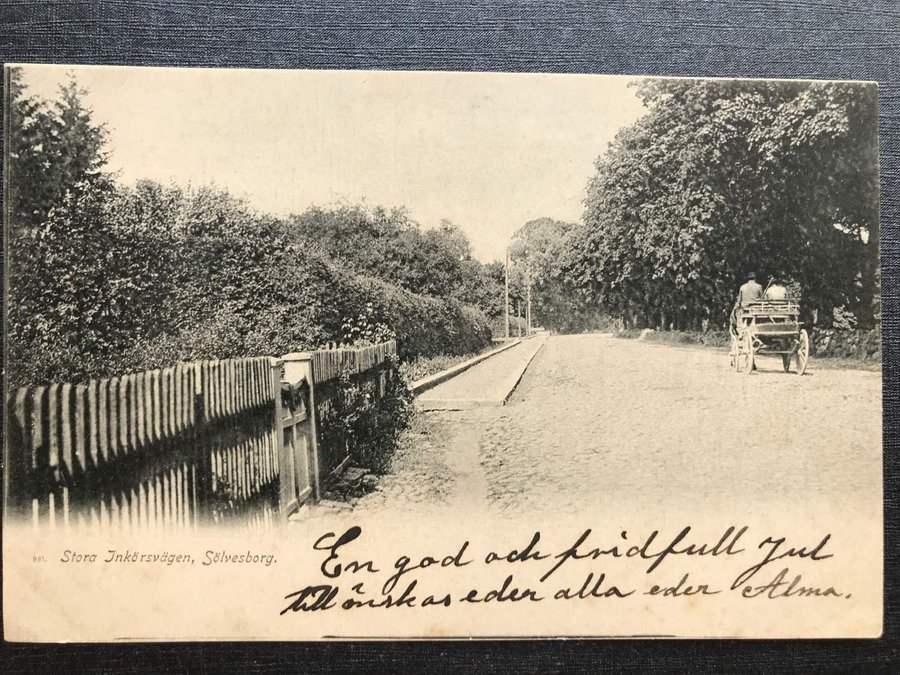 691. Stora Inkörsvägen, Sölvesborg.
En god och fridfull Jul
tillönskas eder alla eder Alma.